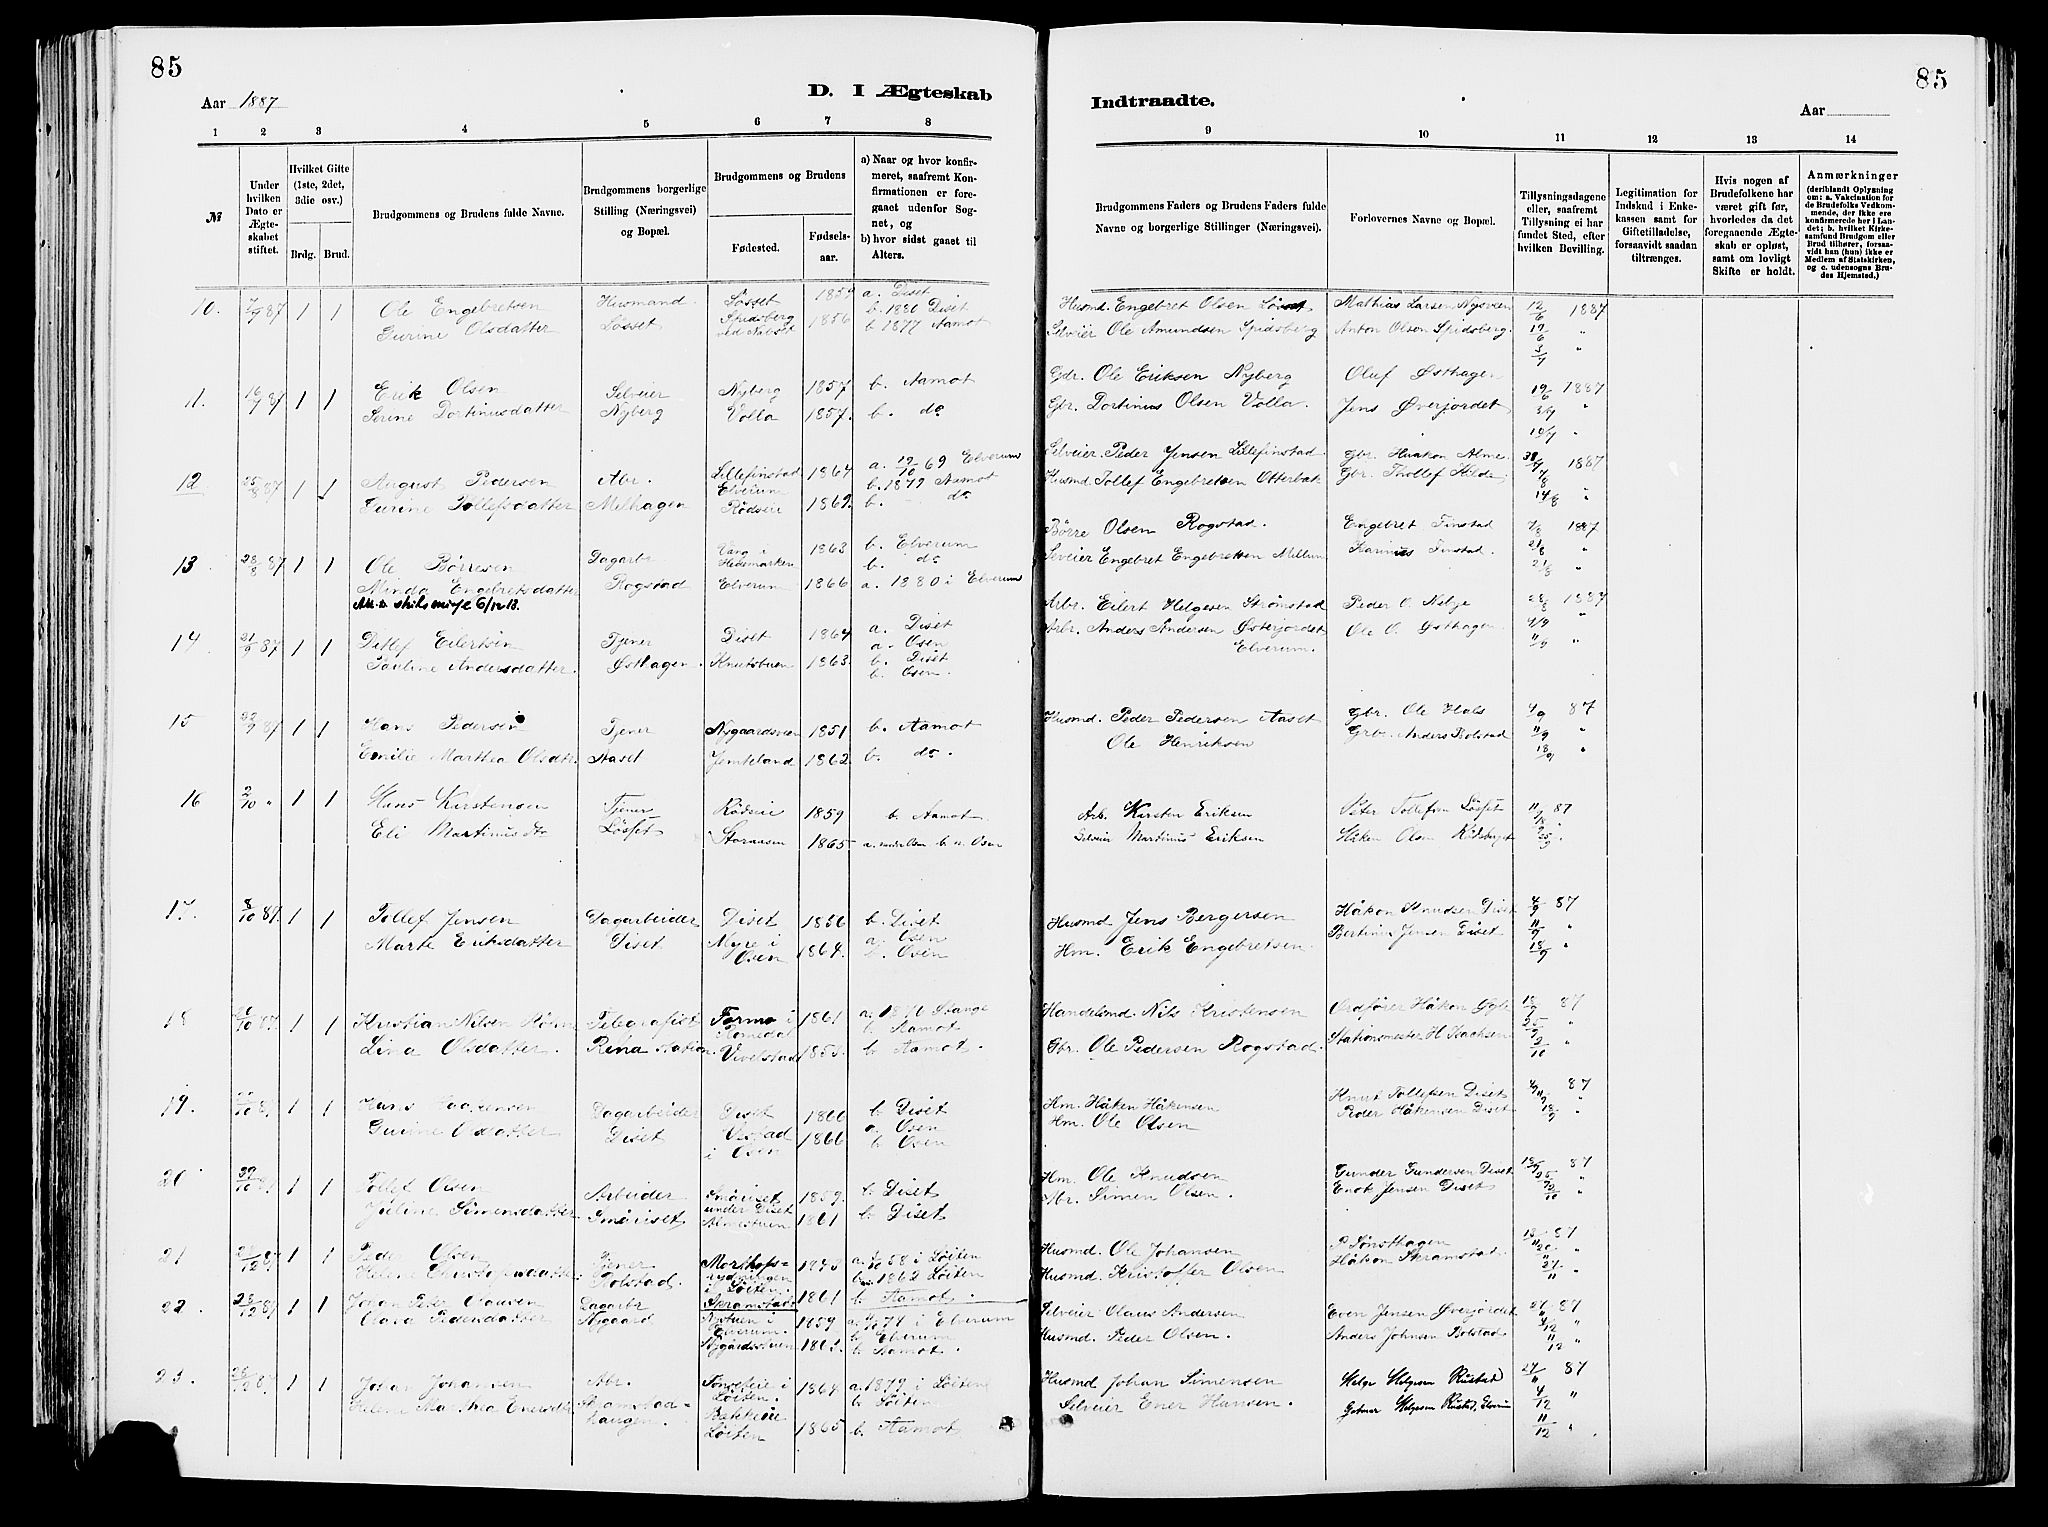 85
85
Aar 1887
D. I Ægteskab
Indtraadte.
Aar
1 2 3 4 5 6 7 8 9 10 11 12 13 14
№
Under hvilken Dato er Ægteskabet stiftet.
Hvilket Gifte (1ste, 2det, 3die osv.)
Brdg. Brud.
Brudgommens og Brudens fulde Navne.
Brudgommens borgerlige Stilling (Næringsvei) og Bopæl.
Brudgommens og Brudens
Fødested.
Fødselsaar.
a) Naar og hvor konfirmeret, saafremt Konfirmationen er foregaaet udenfor Sognet, og
b) hvor sidst gaaet til Alters.
Brudgommens Faders og Brudens Faders fulde Navne og borgerlige Stillinger (Næringsvei).
Forlovernes Navne og Bopæl.
Tillysningsdagene eller, saafremt Tillysning ei har fundet Sted, efter hvilken Bevilling.
Legitimation for Indskud i Enkekassen samt for Giftetilladelse, forsaavidt saadan tiltrænges.
Hvis nogen af Brudefolkene har været gift før, hvorledes da det foregaaende Ægteskab er opløst, samt om lovligt Skifte er holdt.
Anmærkninger
(deriblandt Oplysning om: a. Vakcination for de Brudefolks Vedkommende, der ikke ere konfirmerede her i Landet; b. hvilket Kirkesamfund Brudgom eller Brud tilhører, forsaavidt han (hun) ikke er Medlem af Statskirken, og c. udensogns Brudes Hjemsted.)
10. 87 1 1 Ole Engebretsen Husmand Løsset 1859 a. Diset b. 1880 Diset Husmd. Engebret Olsen Mathias Larsen Nysveen 12/6 1887
Gurine Olsdatter Løsset Spidsberg 1856 b. 1877 Aamot Selveier Ole Amundsen Spidsberg Anton Olsen Spidsberg. 19/6 "
3/7 "
11. 16/7 87 1 1 Erik Olsen Selveier Nyberg 1857 b. Aamot Gdr. Ole Eriksen Nyberg Oluf Østhagen 19/6 1887
Serine Portinusdatter Nyberg Volla 1857. b. do Gbr. Portinus Olsen Volla. Jens Øverjordet 3/7 "
10/7 "
12 25/8 87 1 1 August Pedersen Abr. Lillefinstad Elverum 1864 a. 19/10 69 Elverum b. 1879 Aamot Selveier Peder Jensen Lillefinstad Gbr. Haakon Alme 1887
Gurine Tollefsdatter Melhagen Rødseie 1862. b. do Husmd. Tollef Engebretsen Otterbak Gbr. Thollef Hilde 7/8
14/8 "
13 28/8 87 1 1 Ole Børresen Dagarbr Vang i Hedemarken 1863 b. Elverum b. do Børre Olsen Rogstad. Engebret Finstad 7/8 1887
Minda Engebretsdatter Rogstad Elverum 1866 a. 1880 i Elverum Engebret Engebretsen Millum Karinus Finstad. 21/8 "
21/8 "
14 21/9 87 1 1 Detlef Eilertsen Tjener Diset 1864 a. Diset a. Osen Arbr. Eilert Helgesen Strømstad Peder O. 28/8 1887
Pauline Andersdatter. Østhagen. Knutsbuen 1863. b. Diset b. Osen. Arbr. Anders Andersen Østerjordet Elverum. Ole O. Østhagen 4/9 "
11/9 "
15 87 1 1 Hans Pedersen Tjener Nygaardsveen 1851 b. Aamot Husmd. Peder Pedersen Aaset Gbr. Ole Hals 4/9 87
Emilie Marthea Olsdtr. Aaset Jemteland 1862. b. do. Ole Henriksen Anders Bolstad 11/9 "
18/9 "
16 2/10 " 1 1 Hans Kirstensen Tjener Rødseie 1859 b. Aamot. Arb. Kirsten Eriksen Peter Tollefsen Løsset 11/9 87
Eli Martinusdtr Løsset Storaasen 1865 a. Osen b. Osen Selveier Martinus Eriksen Håken Olsen 18/9
25/9
17. 8/10 87. 1 1 Tollef Jensen Dagarbeider Diset 1856 b. Diset Husmd Jens Bergersen Håkon Knudsen Diset 4/9 87
Marte Eriksdatter Diset Myre i Osen 1864. a. Osen b. Osen Hm. Erik Engebretsen. Bertinus Jensen Diset 11/9 "
18/9 "
18 87. 1 1 Kristian Nilsen Telegrafist Romedal 1861 a. 1876 Stange b. Aamot. Handelsmd. Nils Kristensen Ordfører Håkon 18/9 87
Lina Olsdatter. Rena station. Vivelstad 1855. b. Aamot. Gbr. Ole Pedersen Rogstad. Stationsmester H. Isachsen 25/9 "
2/10 "
19. 87 1 1 Hans Dagarbeider Diset 1866 b. Diset Hm. Håken Håkensen Knut Tollefsen Diset 4/9 87
Gurine Olsdatter Diset i Osen 1866 a. Osen b. Osen Hm. Ole Olsen Peder Håkensen Diset 11/9 18/9 "
20 30/10 87 1 1 Tollef Olsen Arbeider Småriset under Diset 1859. b. Diset Hm. Ole Knudsen Gunder Gundersen Diset 18/9 87
Juline Simensdatter Småriset Almestuen 1861 b. Diset Abr. Simen Olsen. Enok Jensen Diset 25/9 "
2/10 "
21 87 1 1 Peder Olsen Tjener i Løiten. 1843 a. 58 i Løiten b. 1862 Løiten Husmd. Ole Johansen P. Sønsthagen 87
Helene Christofersdatter Bolstad. Skramstad 1861 b. Aamot. Husmd. Kristoffer Olsen Håkon Skramstad. 20/11 "
27/11 "
22. 87 1 1 Johan Peter Clausen Dagarbr i Elverum. 1859 a. 74 i Elverum b. Elverum Selveier Claus Andersen Even Jensen Øverjordet 27/11 87
Clara Pedersdatter Nygaard Nygårdsstuen 1863. b. Aamot. Husmd. Peder Olsen. Anders Johnsen Bolstad 4/12 "
11/12 "
23. 87 1 1 Johan Johansen Abr. i Løiten. 1864 a. 1879. i Løiten b. Løiten Husmd Johan Simensen Helge Helgesen Rustad 27/11 87
Helene Marthea Skramstadhaugen. Bakkeeie Løiten 1865 b. Aamot Selveier Ener Hansen. Helgesen Rustad, 4/12 "
11/12 "